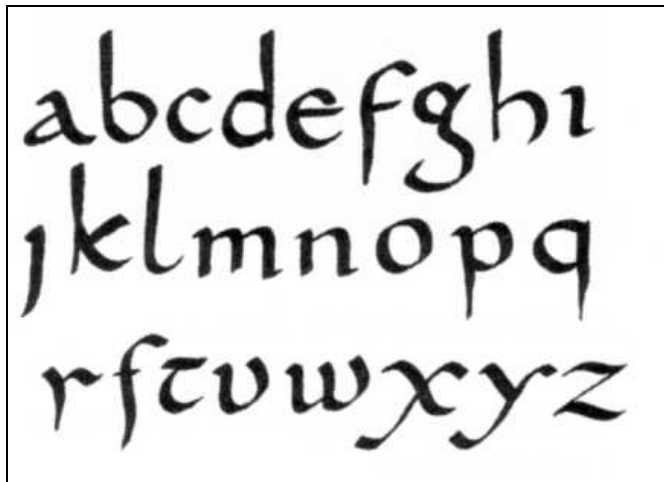 abcdefghı
ȷklmnopq
rſtvwxyz